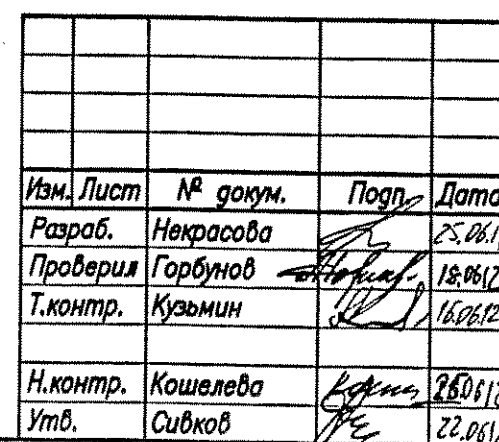 Изм. Лист № докум. Подп. Дата
Разраб. Некрасова 25.06.1
Проверил Горбунов 18.06.12
Т.контр. Кузьмин 16.06.12
Н.контр. Кошелева
Утв. Сивков 22.06.1